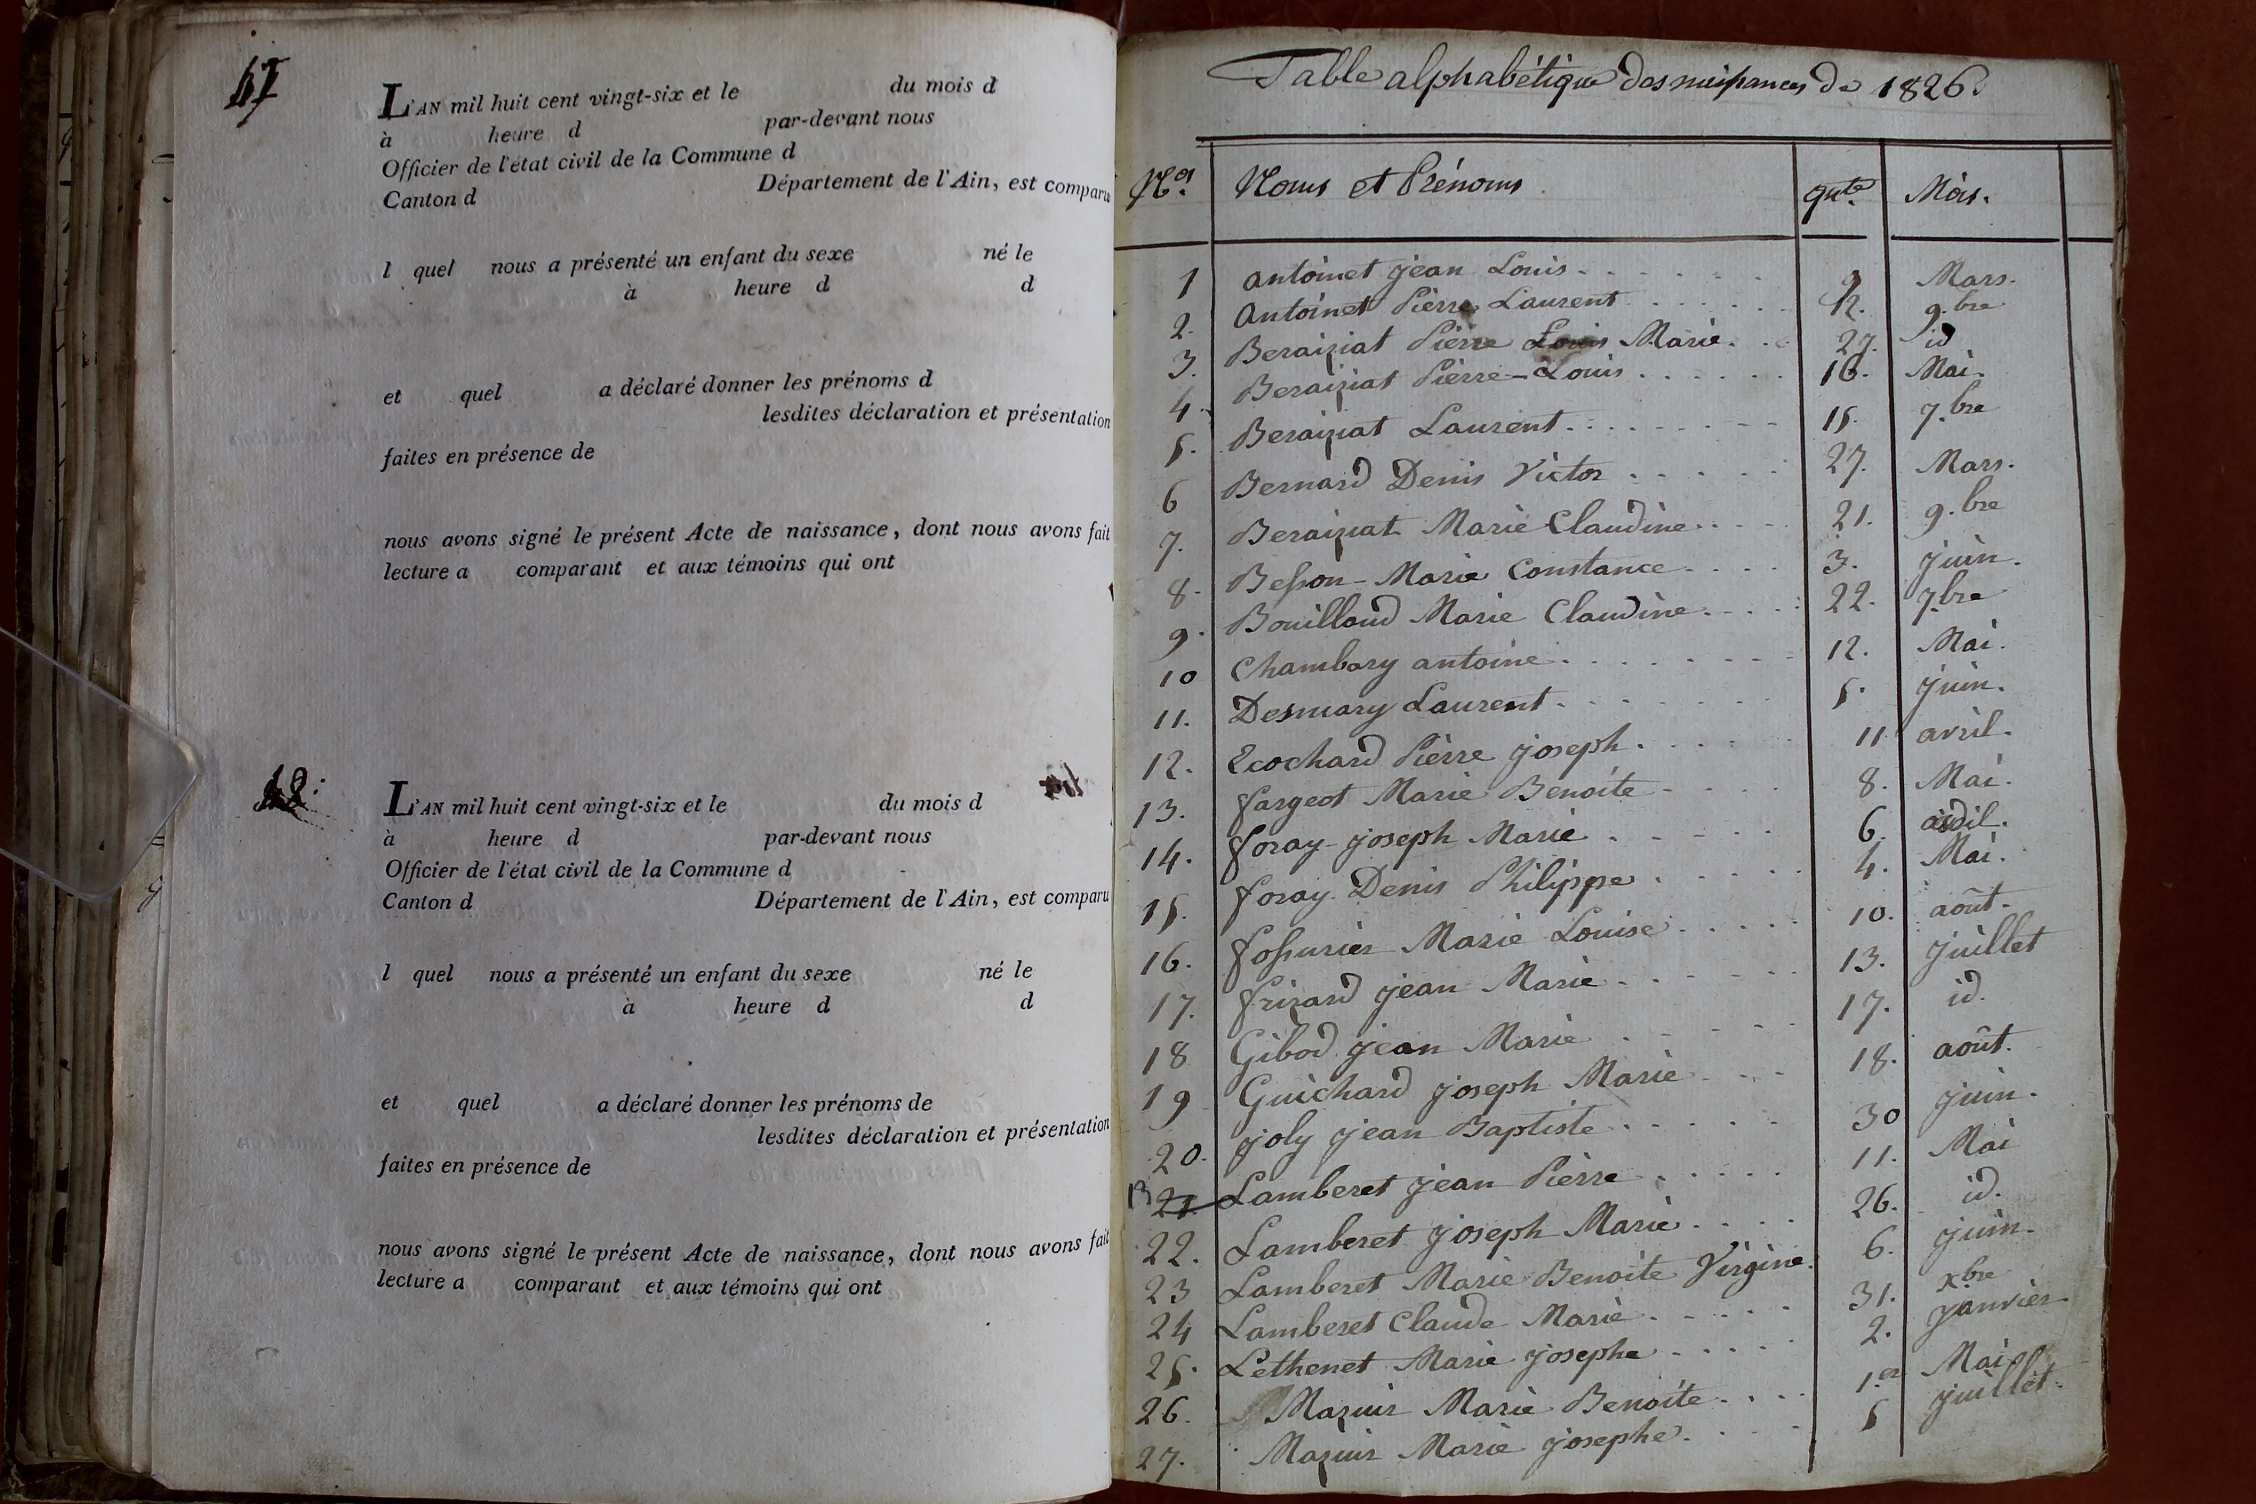 47
L'AN mil huit cent vingt-six et le du mois d
à heure d par-devant nous
Officier de l'état civil de la Commune d
Canton d Département de l'Ain, est comparu
l quel nous a présenté un enfant du sexe né le
à heure d d
et quel a déclaré donner les prénoms d
lesdites déclaration et présentation
faites en présence de
nous avons signé le présent Acte de naissance, dont nous avons fait
lecture a comparant et aux témoins qui ont
L'AN mil huit cent vingt-six et le du mois d
à heure d par-devant nous
Officier de l'état civil de la Commune d
Canton d Département de l'Ain, est comparu
l quel nous a présenté un enfant du sexe né le
à heure d d
et quel a déclaré donner les prénoms de
lesdites déclaration et présentation
faites en présence de
nous avons signé le présent Acte de naissance, dont nous avons fait
lecture a comparant et aux témoins qui ont
Table alphabétique des naissances de 1826.
Nos. Noms et Prénoms qnte. Mois.
1 antoinet jean Louis 9 Mars.
2. antoinet Pierre Laurent 12. 9.bre
3. Beraiziat Pierre Louis Marie 27. id
4. Beraiziat Pierre-Louis 16. Mai.
5. Beraiziat Laurent 15. 7.bre
6 Bernard Denis Victor 27. Mars.
7. Beraiziat Marie Claudine 21. 9.bre
8. Besson-Marie Constance 3. juin.
9. Bouilloud Marie Claudine 22. 7.bre
10 Chambary antoine 12. Mai.
11. Desmary Laurent 5. juin.
12. Ecochard Pierre joseph 11 avril.
13. fargeot Marie Benoite 8. Mai.
14. foray joseph Marie 6. avril.
15. foray Denis Philippe 4. Mai.
16. fossurier Marie Louise 10. août.
17. frizard jean Marie 13. juillet
18 Gibod jean Marie 17. id.
19 Guichard joseph Marie 18. août.
20. joly jean Baptiste 30 juin.
21. Lamberet jean Pierre 11. Mai
22. Lamberet joseph Marie 26. id.
23 Lamberet Marie Benoite Virgine 6. juin.
24 Lamberet Claude Marie 31. Xbre
25. Lethenet Marie josephe 2. janvier
26. Mazuir Marie Benoite 1.er Mai
27. Mazuir Marie josephe 5 juillet